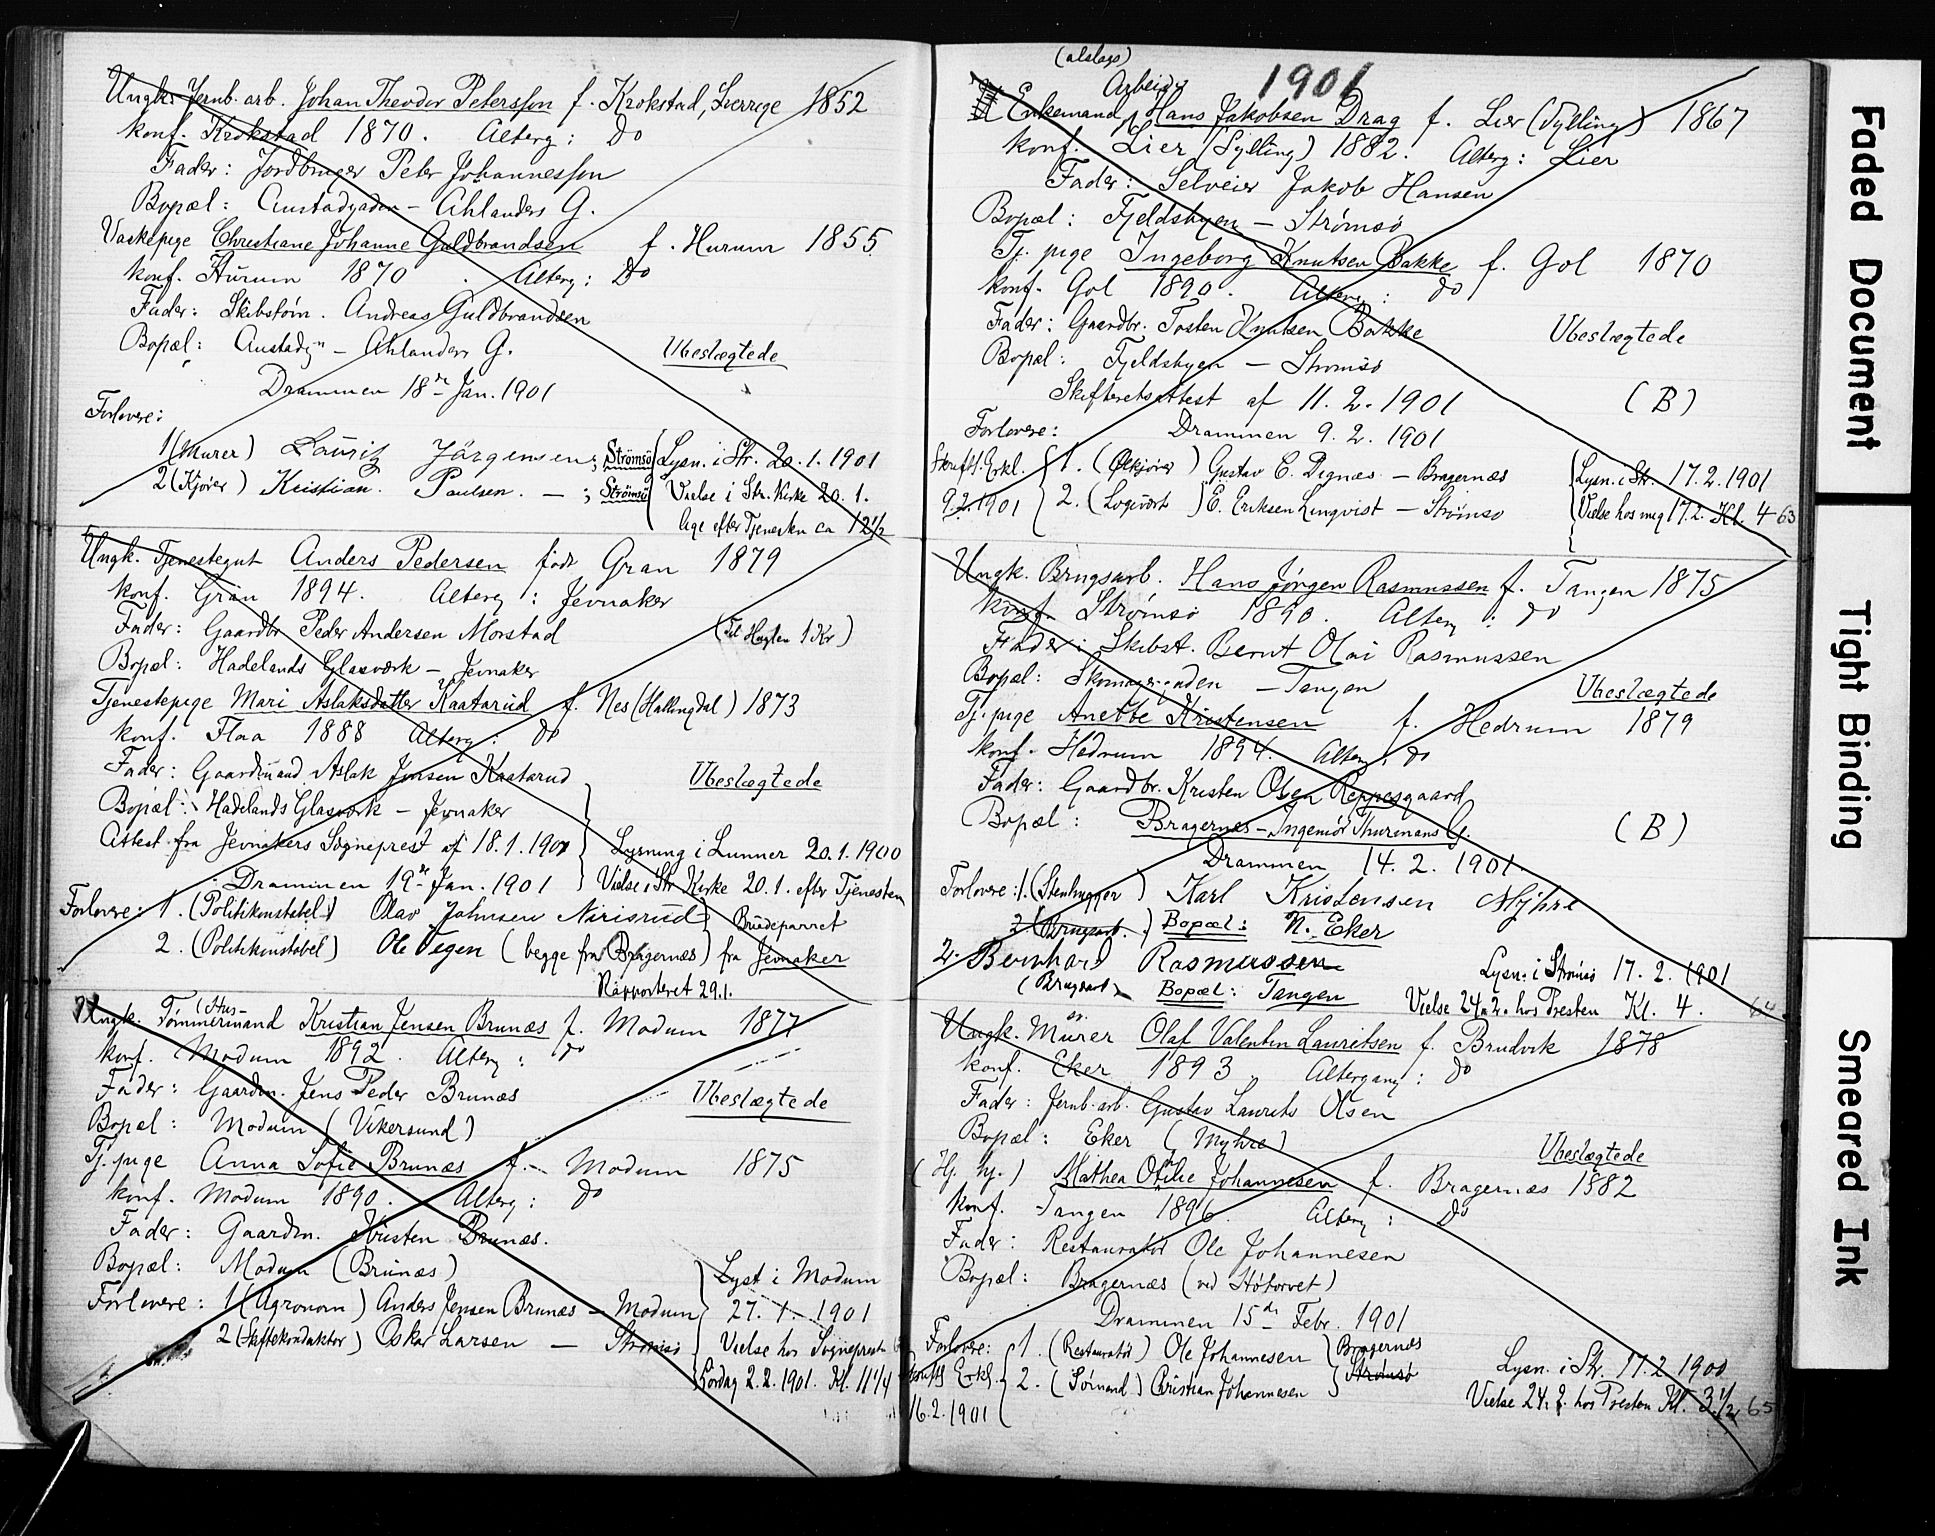 Ungk. Jernb. arb. Johan Theodor Petersson f. Krokstad, Sverrige 1852
konf. Krokstad 1870. Alterg: Do
Fader: Jordbruger Peter Johannesson
Bopæl: Austadgaden - Ahlanders G.
Vaskepige Christiane Johanne Guldbrandsen f. Hurum 1855
konf. Hurum 1870. Alterg: Do
Fader: Skibstøm. Andreas Guldbrandsen
Bopæl: Austadgn - Ahlanders G. Ubeslægtede
Drammen 18de Jan. 1901
Forlovere:
1 (Murer) Lauritz Jörgensen; Strömsö Lysn. i Str. 20.1.1901
2 (Kjører) Kristian Paulsen. - ; Strömsö Vielse i Str. Kirke 20.1.
lige efter Tjenesten ca 12 1/2
Ungk. Tjenestegut Anders Pedersen født Gran 1879
konf. Gran 1894. Alterg: Jevnaker
Fader: Gaardbr Peder Andersen Morstad (Til 1 Kr)
Bopæl: Hadelands Glasværk - Jevnaker
Tjenestepige Mari Aslaksdatter Kaatarud f. Nes (Hallingdal) 1873
konf. Flaa 1888 Alterg: Do
Fader: Gaardmand Aslak Jensen Kaatarud Ubeslægtede
Bopæl: Hadelands Glasværk - Jevnaker
Attest fra Jevnakers Sogneprest af 18.1.1901 Lysning i Lunner 20.1.1900
Drammen 19de Jan. 1901 Vielse i Str Kirke 20.1. efter Tjenesten
Forlovere: 1. (Politikonstabel) Olav Johnsen Nirisrud Brudeparret
2. (Politikonstabel) Ole Tegen (begge fra Bragernæs) fra Jevnaker
Rapporteret 29.1.
(Hus-
Ungk. Tømmermand Kristian Jensen Brunæs f. Modum 1877
konf. Modum 1892. Alterg: do
Fader: Gaardm. Jens Peder Brunæs Ubeslægtede
Bopæl: Modum (Vikersund)
Tj. pige Anna Sofie Brunæs f. Modum 1875
konf. Modum 1890. Alterg: Do
Fader: Gaardm. Kristen Brunæs.
Bopæl: Modum (Brunæs) Lyst i Modum
Forlovere: 1 (Agronom) Anders Jensen Brunæs - Modum 27.1.1901
2 (Skiftekonduktør) Oskar Larsen - Strömsö Vielse hos Sognepresten
Lördag 2.2.1901. Kl. 11 1/4
(afslags)
Arbeider 1901
Enkemand Hans Jakobsen Drag f. Lier (Sylling) 1867
konf. Lier (Sylling) 1882. Alterg: Lier
Fader: Selveier Jakob Hansen
Bopæl: Fjeldsbyen - Strømsö
Tj. pige Ingeborg Knutsen Bakke f. Gol 1870
konf. Gol 1890. Alterg: do
Fader: Gaardbr. Tosten Knutsen Bakke Ubeslægtede
Bopæl: Fjeldsbyen - Strömsö
Skifteretsattest af 11.2.1901 (B)
Forlovere: Drammen 9.2.1901
Skriftl. Erkl. 1. (Ølkjører) Gustav C. Dignæs - Bragernæs Lysn. i Str. 17.2.1901
9.2.1901 2. (Logivært) E. Eriksen Lunqvist - Strömsö Vielse hos mig 17.2. Kl. 4 63
Ungk. Brugsarb. Hans Jörgen Rasmussen f. Tangen 1875
konf. Strömsö 1890. Alterg: Do
Fader: Skibst. Bernt Olai Rasmussen
Bopæl: Skomagergaden - Tangen Ubeslægtede
Tj. pige Anette Kristensen f. Hedrum 1879
konf. Hedrum 1894. Alterg: do
Fader: Gaardbr. Kristen Olsen Reppesgaard
Bopæl: Bragernæs - Ingeniør Thurmans G. (B)
Drammen 14.2.1901.
Forlovere: 1. (Stenhugger) Karl Kristensen Myhre
2. (Brugsarb.) Bopæl: N. Eker
2. Bernhard Rasmussen Lysn. i Strömsö 17.2.1901
(Brugsarb) Bopæl: Tangen Vielse 24.2. hos Presten Kl. 4. 64
Ungk. Murersv. Olaf Valentin Lauritsen f. Brudvik 1878
konf. Eker 1893. Altergang: Do
Fader: Jernb. arb. Gustav Laurits Olsen
Bopæl: Eker (Myhre) Ubeslægtede
(Hj. hj.) Mathea Otilie Johannesen f. Bragernæs 1882
konf. Tangen 1896. Alterg: Do
Fader: Restauratør Ole Johannesen
Bopæl: Bragernæs (ved Høtorvet)
Drammen 15de Febr. 1901
Forlovere: 1. (Restauratør) Ole Johannesen Bragernæs
Skriftl Erkl. 2. (Sömand) Christian Johannesen Strømsö Lysn. i Str. 17.2.1901
16.2.1901 Vielse 24.2. hos Presten Kl. 3 1/2 65
Faded Document
Tight Binding
Smeared Ink